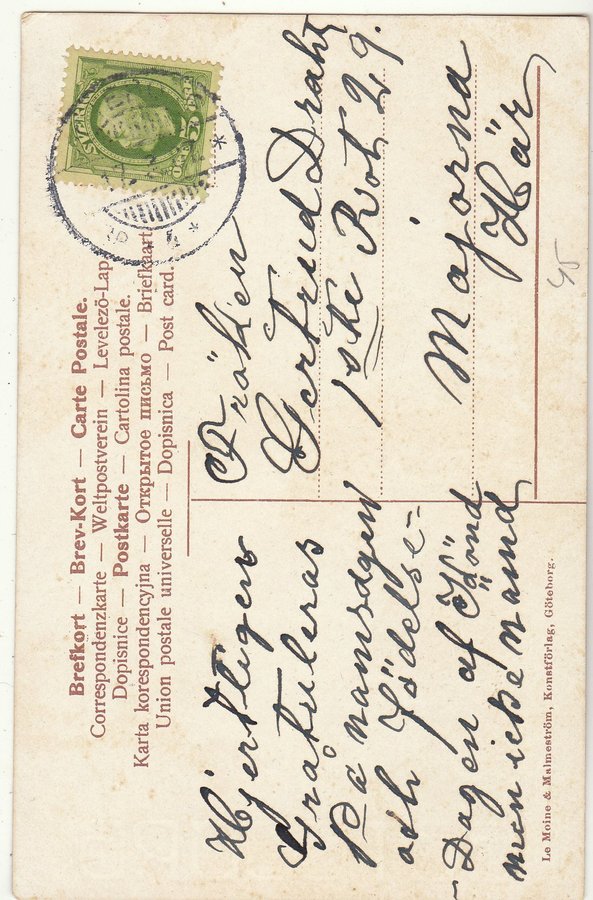 Brefkort — Brev-Kort — Carte Postale.
Correspondenzkarte — Weltpostverein — Levelező-Lap
Dopisnice — Postkarte — Cartolina postale.
Karta korespondencyjna — Открытое письмо — Briefkaart
Union postale universelle — Dopisnica — Post card.
SVERIGE
5 ÖRE
Hjertligen
Gratuleras
På namsdgen
och Födelse=
Dagen af Känd
men icke namd
Fröken
Gertrud Draht
1ste Rot 29.
Majorna
Här
45
Le Moine & Malmeström, Konstförlag, Göteborg.